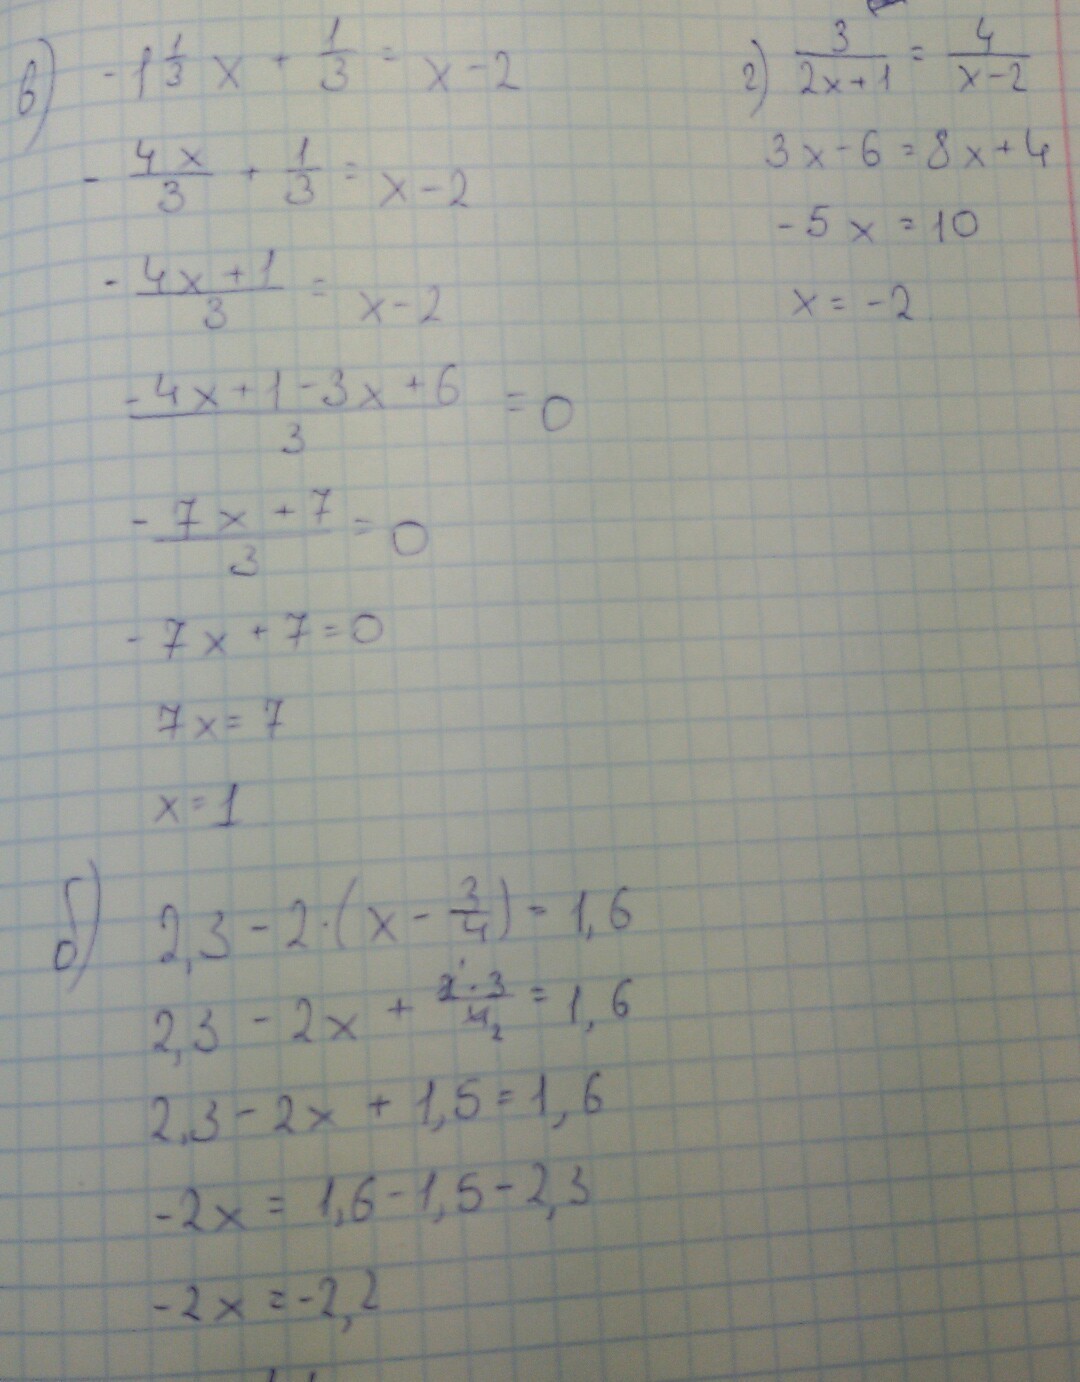 в) -1 1/3 x + 1/3 = x - 2
- 4x/3 + 1/3 = x - 2
- 4x + 1/3 = x - 2
-4x + 1 - 3x + 6/3 = 0
- 7x + 7/3 = 0
- 7x + 7 = 0
7x = 7
x = 1
г) 3/2x+1 = 4/x-2
3x - 6 = 8x + 4
-5x = 10
x = -2
б) 2,3 - 2·(x - 3/4) = 1,6
2,3 - 2x + 2·3/4 = 1,6
2,3 - 2x + 1,5 = 1,6
-2x = 1,6 - 1,5 - 2,3
-2x = -2,2